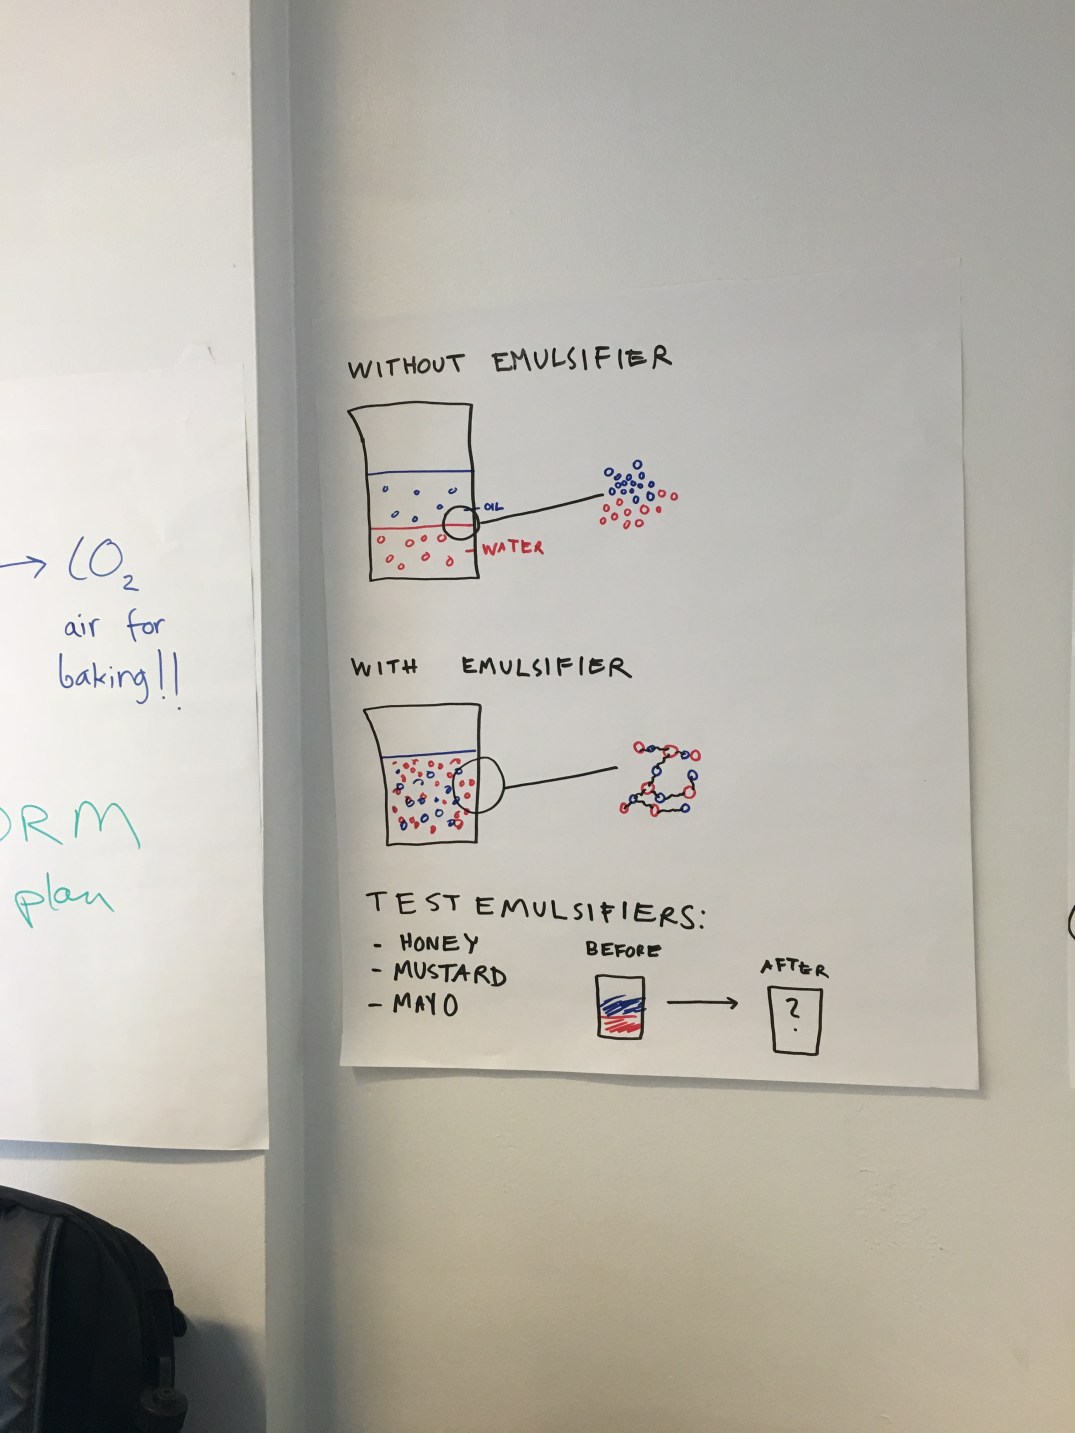 → CO₂
air for
baking!!
plan
WITHOUT EMULSIFIER
OIL
WATER
WITH EMULSIFIER
TEST EMULSIFIERS:
- HONEY
- MUSTARD
- MAYO
BEFORE
→
AFTER
?